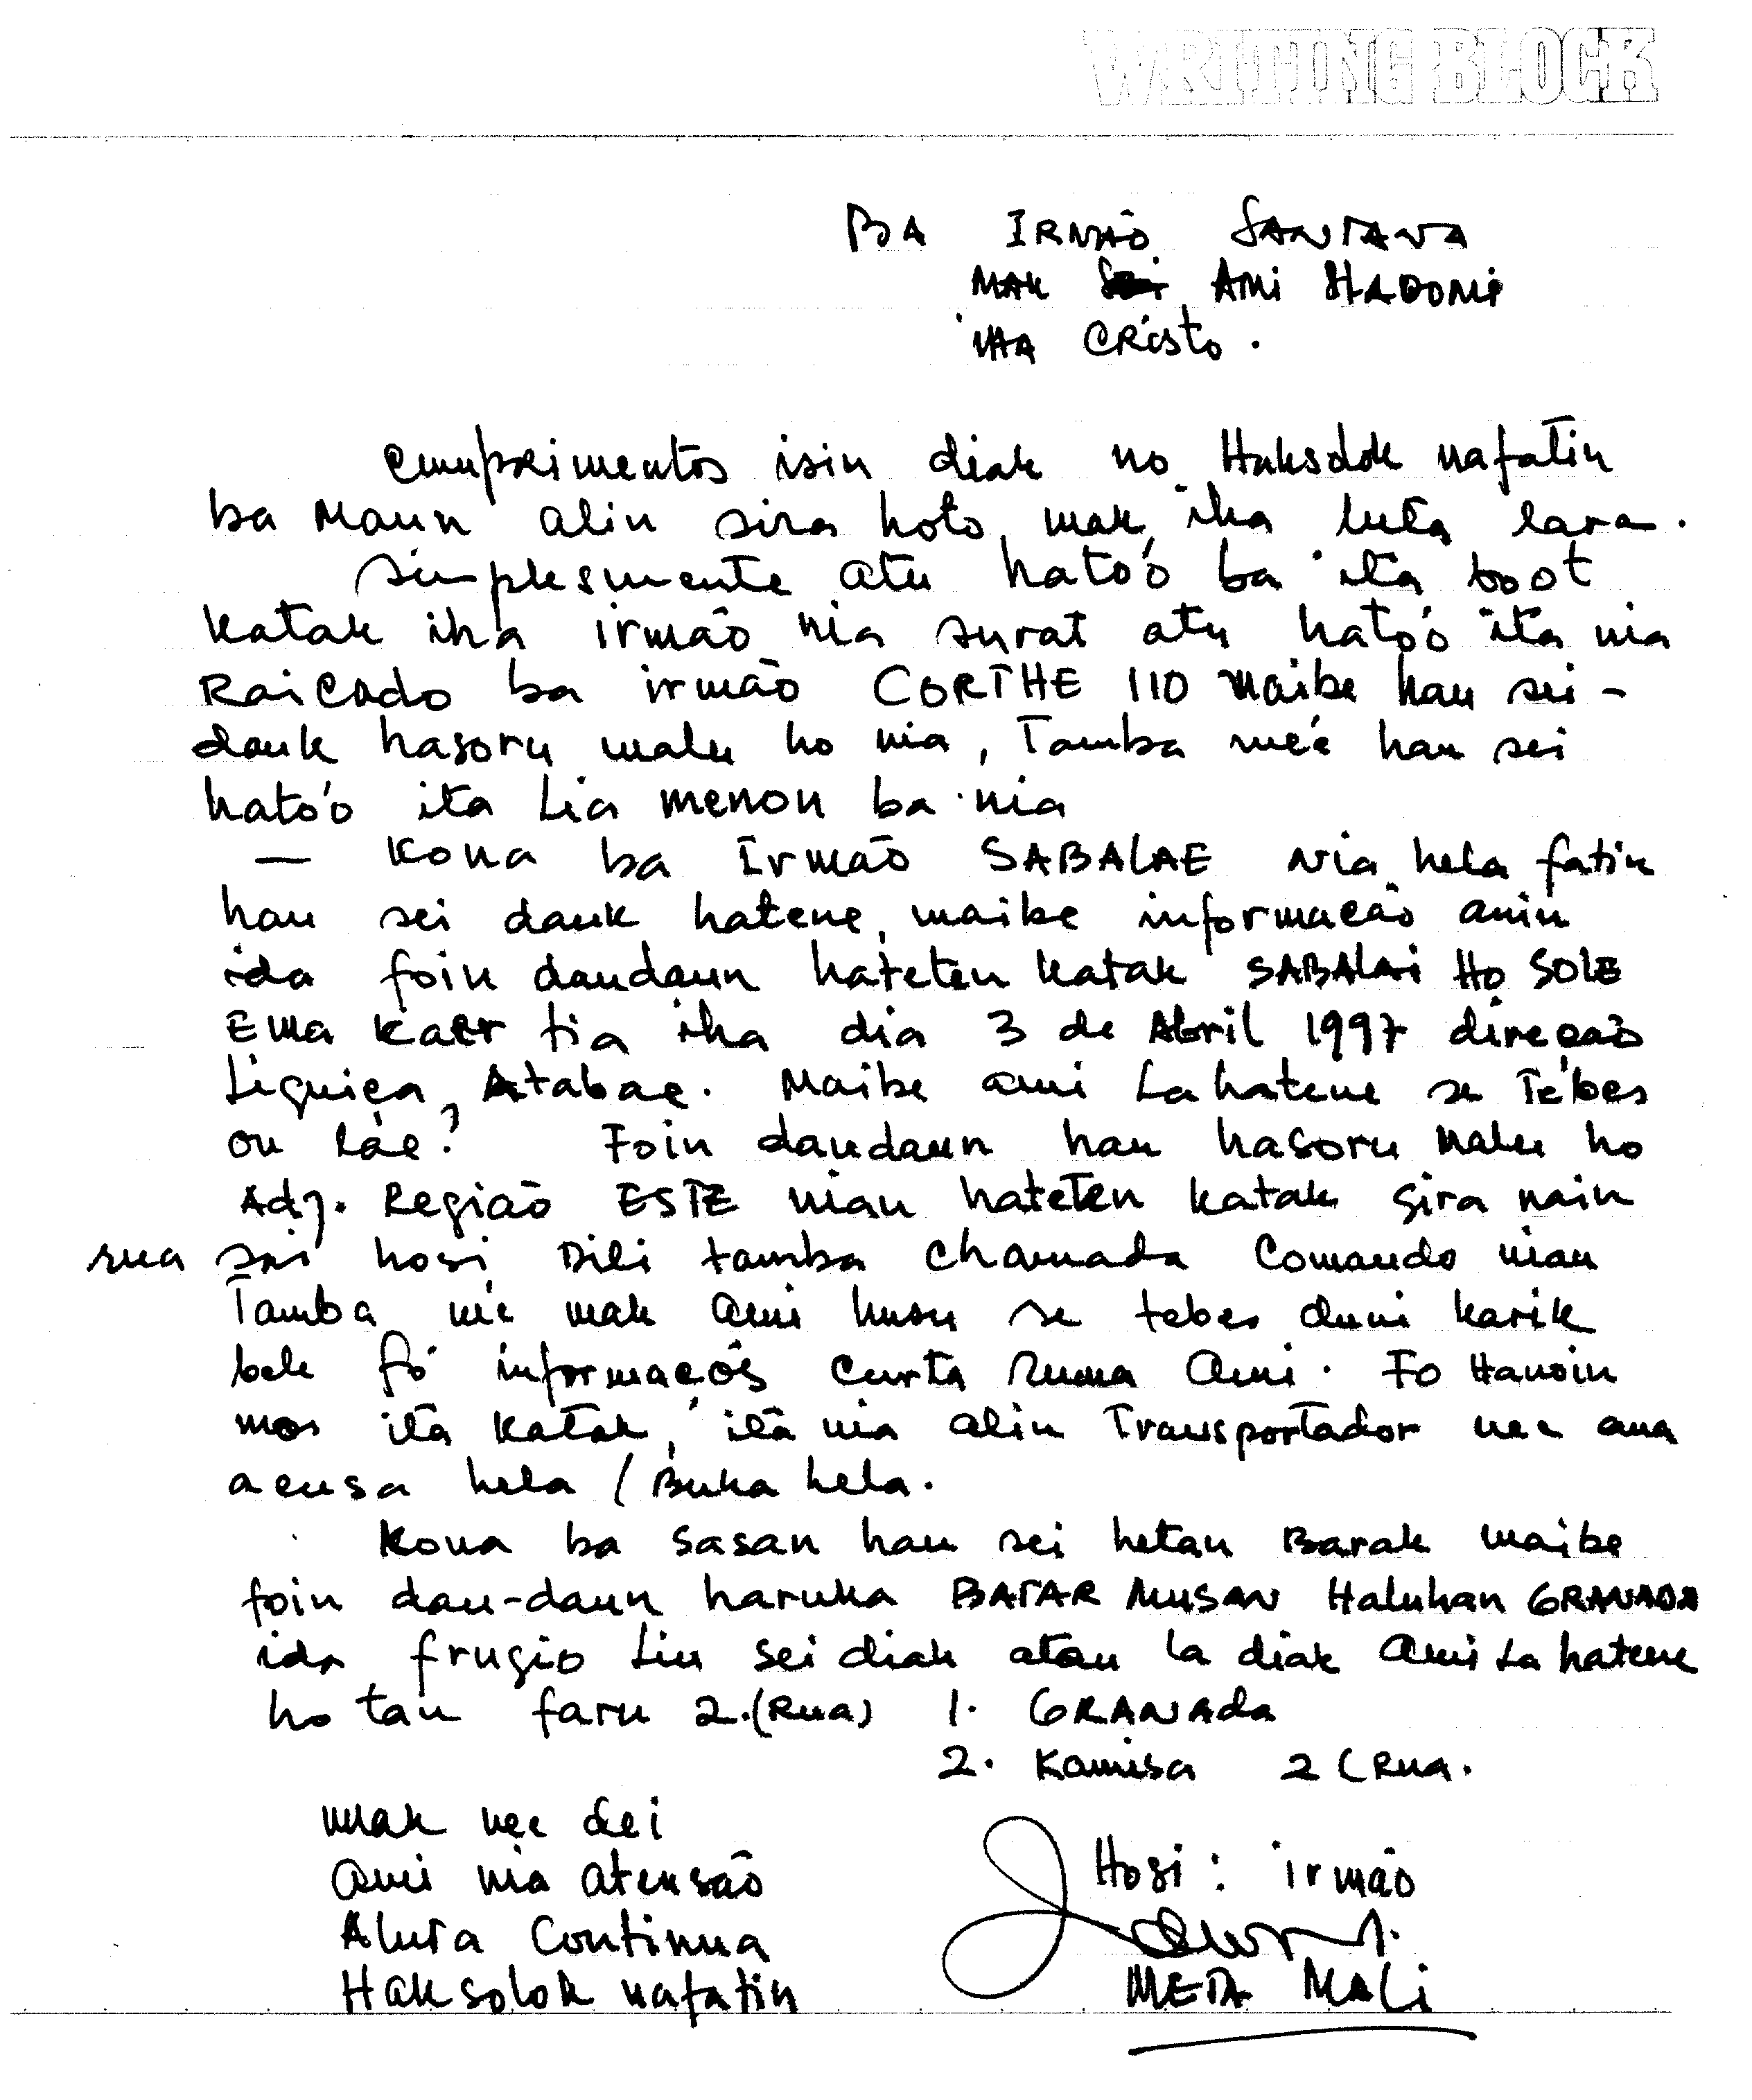 WRITING BLOCK
BA IRMÃO SANTANA
MAK AMI HADOMI
IHA CRISTO.
Cumprimentos isin diak no Haksolok nafatin
ba Maun alin sira hoto mak iha luta lara.
Simplesmente atu hato'o ba ita boot
katak iha irmão nia surat atu hato'o ita nia
Raicado ba irmão CORTHE 110 maibe hau sei-
dauk hasoru malu ho nia, Tamba ne'e hau sei
hato'o ita Lia menon ba nia
— Kona ba Irmão SABALAE Nia hela fatin
hau sei dauk hatene, maibe informação anin
ida foin daudaun hateten katak SABALAI HO SOLE
Ema kaer tia iha dia 3 de Abril 1997 direção
Liquiça, Atabae. Maibe ami La hatene se Te'bes
ou Lae? Foin daudaun hau hasoru malu ho
Adj. Região ESTE nian hateten katak Sira nain
rua sai hosi Dili tamba chamada Comando nian
Tamba ne'e mak ami husu se tebes duni karik
bele fó informaçõs Curta Ruma Ami. Fo Hanoin
mos ita katak, ita nia alin Transportador nee ana
acusa hela / Buka hela.
Kona ba sasan hau sei hetan Barak maibe
foin dau-daun haruka BATAR MUSAN Haluhan GRANADA
ida frugio Liu sei diak atau la diak Ami La hatene
ho tau faru 2.(Rua) 1. GRANAda
2. Kamisa 2 (Rua.
mak nee dei
Ami nia atensão
Aluta Continua
Haksolok nafatin
Hosi: irmão
META MALi